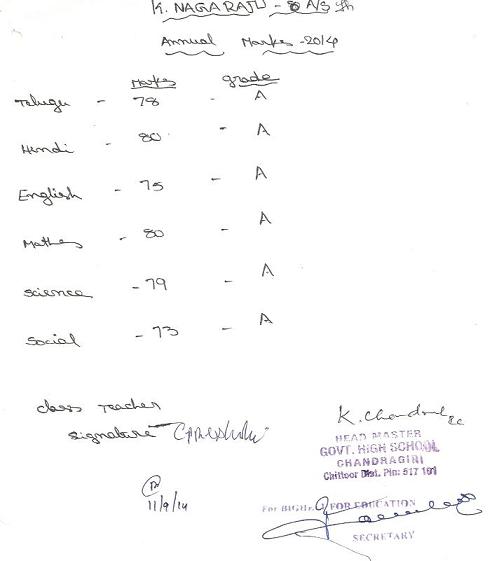 K. NAGARAJU - 8 A/s
Annual Marks - 2014
Marks grade
Telugu - 78 - A
Hindi - 80 - A
English - 75 - A
Mathes - 80 - A
Science - 79 - A
Social - 73 - A
class Teacher
signature
K. Chandra
HEAD MASTER
GOVT. HIGH SCHOOL
CHANDRAGIRI
Chittoor Dist. Pin: 517 101
11/9/14
For RIGHT FOR EDUCATION
SECRETARY